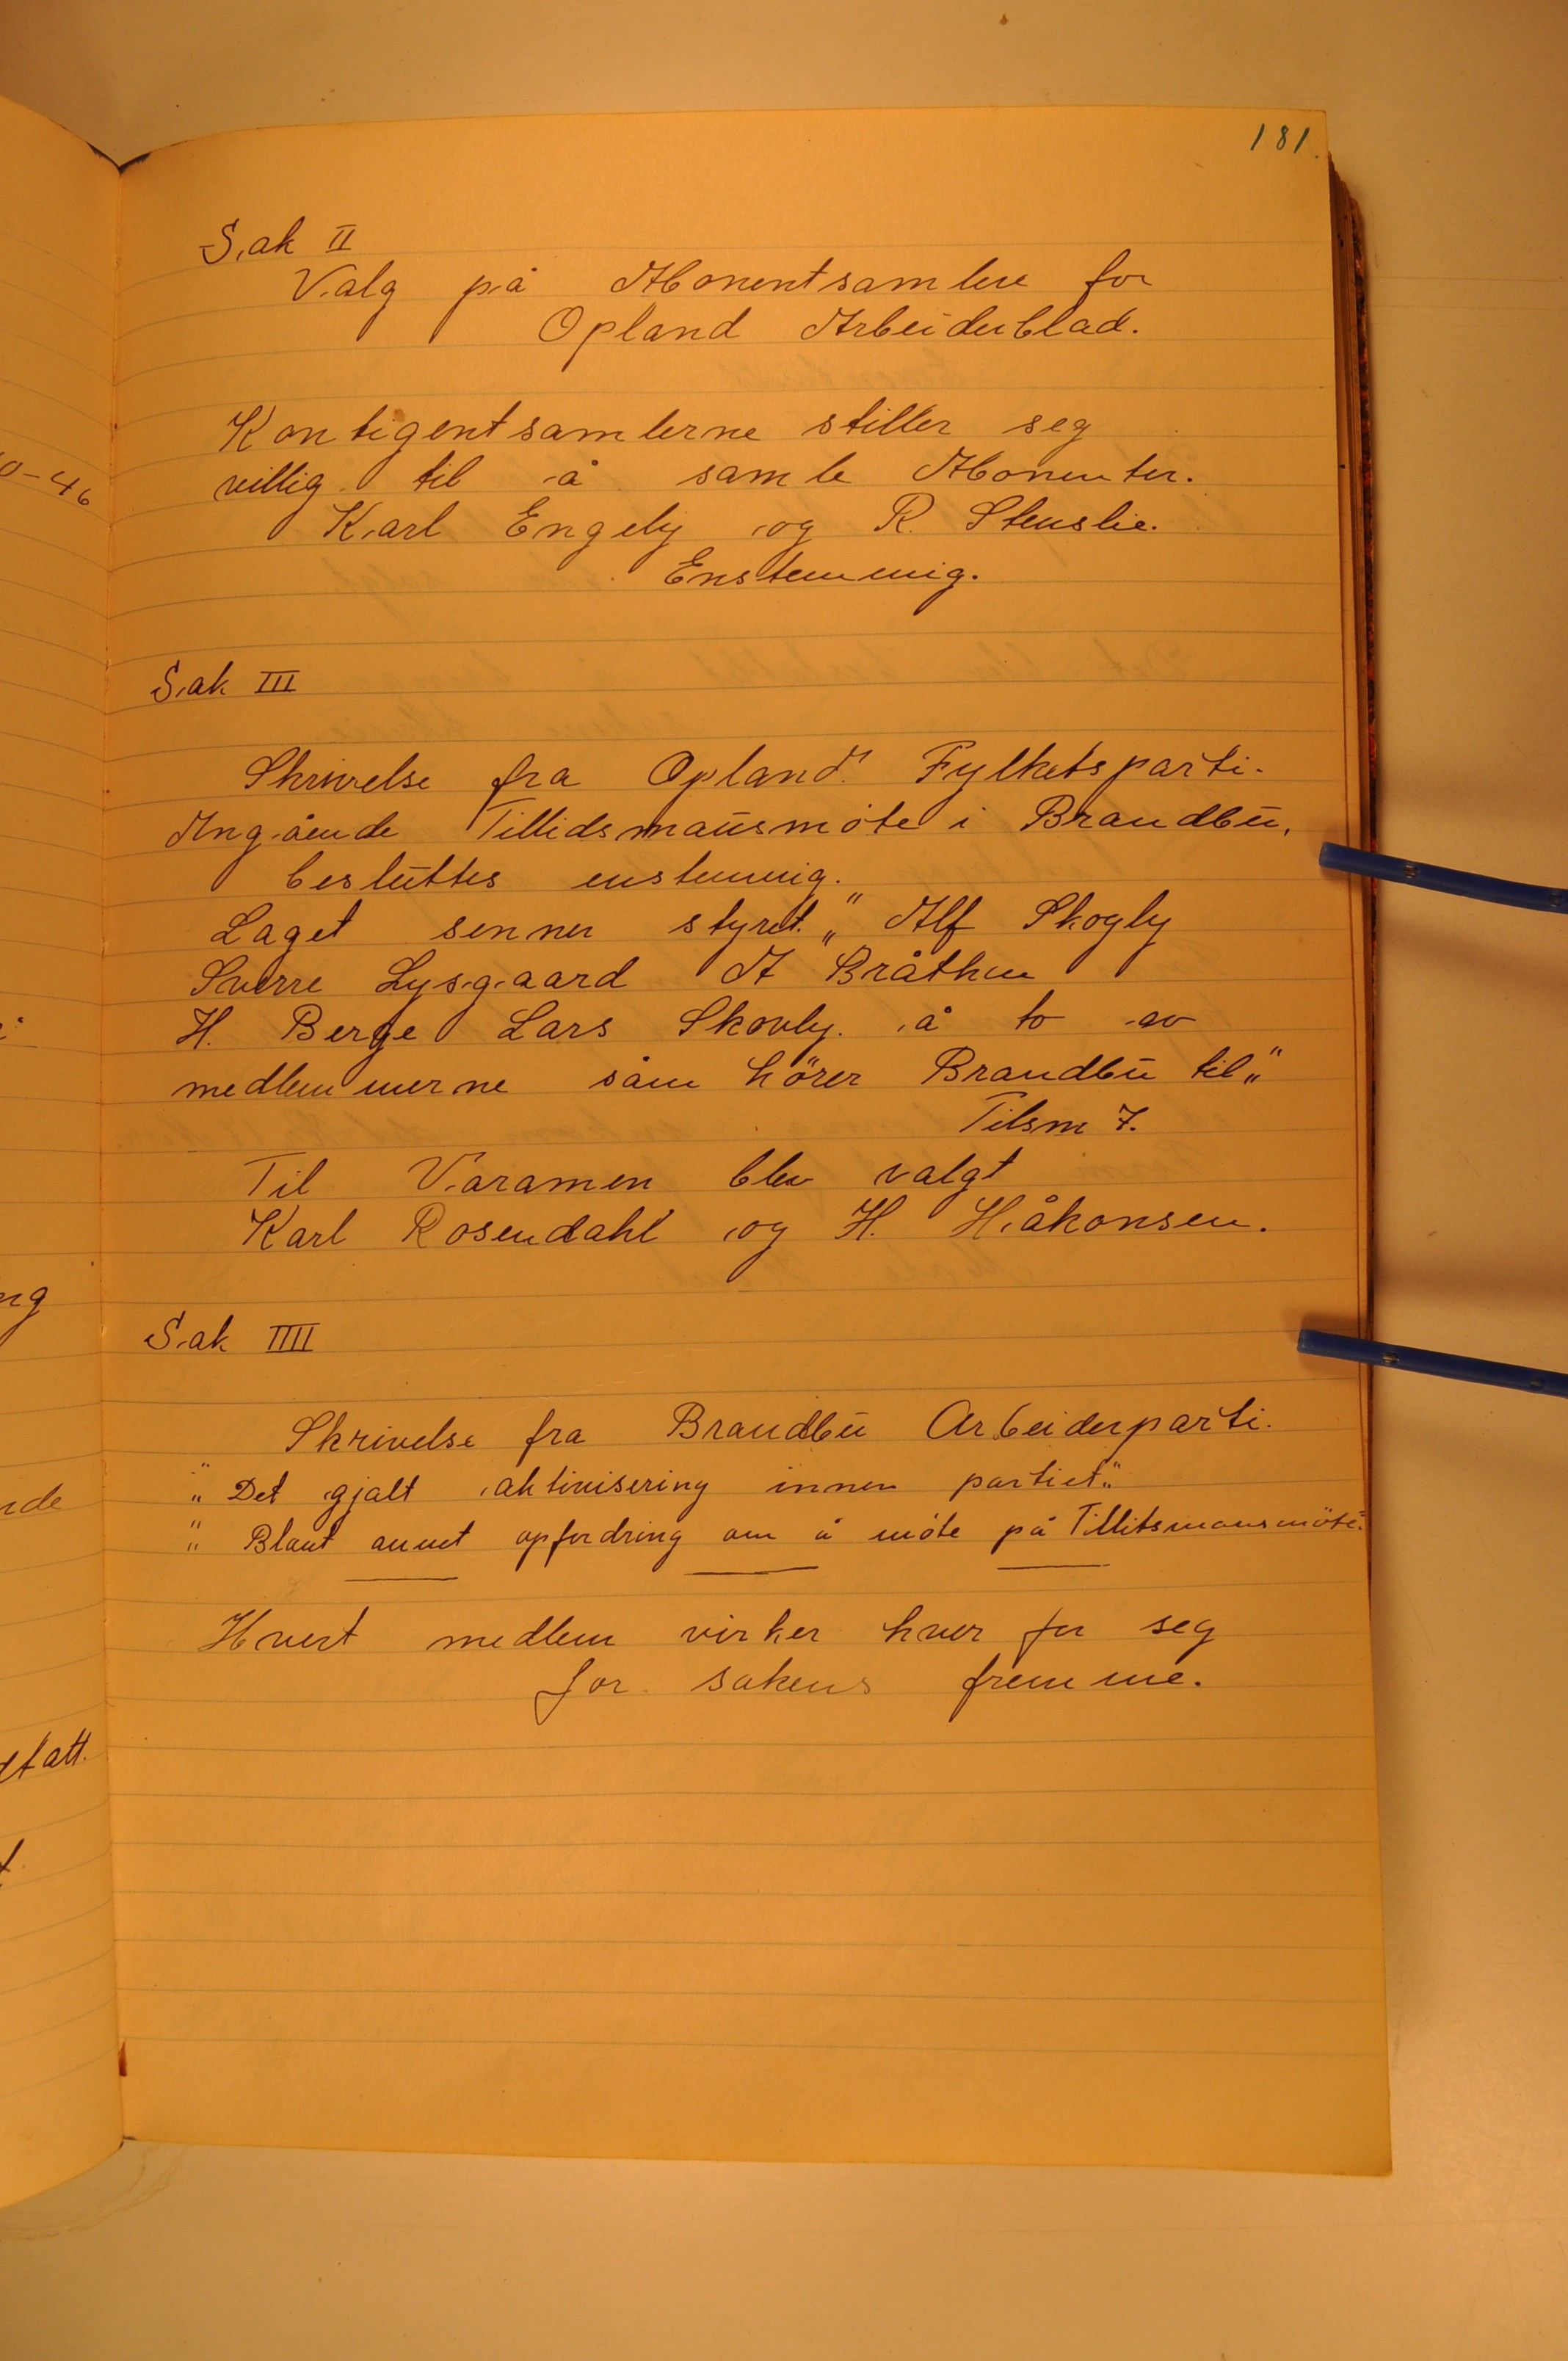 181.
Sak II
Valg på Abonentsamlere for
Opland Arbeiderblad.
Kontigentsamlerne stiller seg
villig til å samle Abonenter.
Karl Engeby og R. Stenslie.
Enstemmig.
Sak III
Skrivelse fra Opland. Fylketsparti.
Angående Tillidsmansmøte i Brandbu.
besluttes enstemmig.
Laget senner styret. „ Alf Skogly
Sverre Lysgaard A Bråthen
H. Berge Lars Skovly. å to av
medlemmerne såm hörer Brandbu til „
Tilsm 7.
Til Varamen blev valgt
Karl Rosendahl og H. Håkonsen.
Sak IIII
Skrivelse fra Brandbu Arbeiderparti.
„ Det gjalt aktivisering innen partiet."
„ Blant annet opfordring om å möte på Tillitsmansmöte.
Hvert medlem virker hver for seg
for sakens fremme.
0-46
ng
nde
tatt.